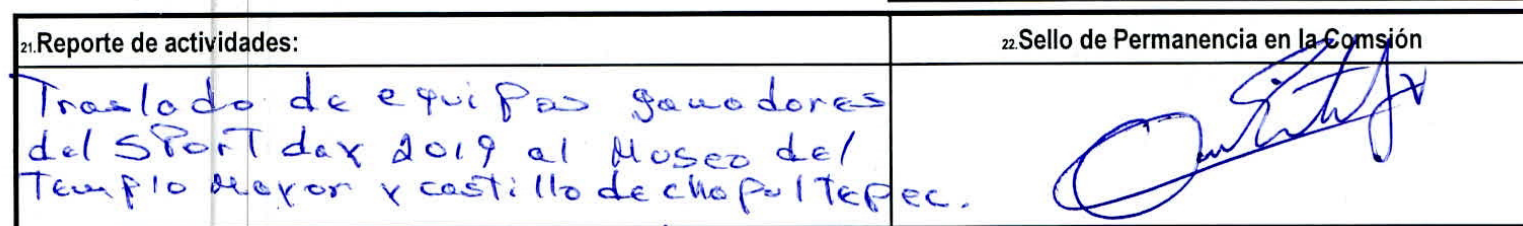 21.Reporte de actividades:
22.Sello de Permanencia en la Comsión
Traslado de equipos ganadores
del SPorT day 2019 al Museo del
Templo Mayor y castillo de chapulTepec.